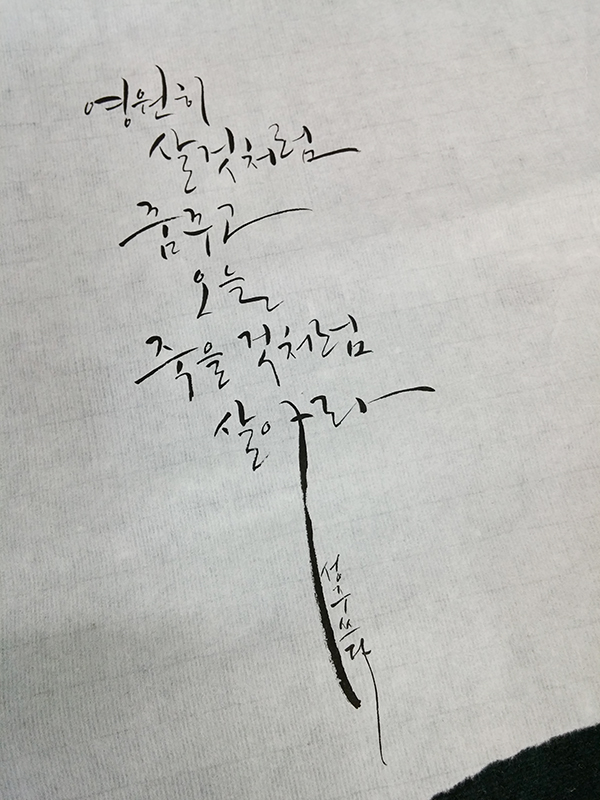 영원히
살것처럼
춤추고
오늘
죽을 것처럼
살아라
성주쓰다